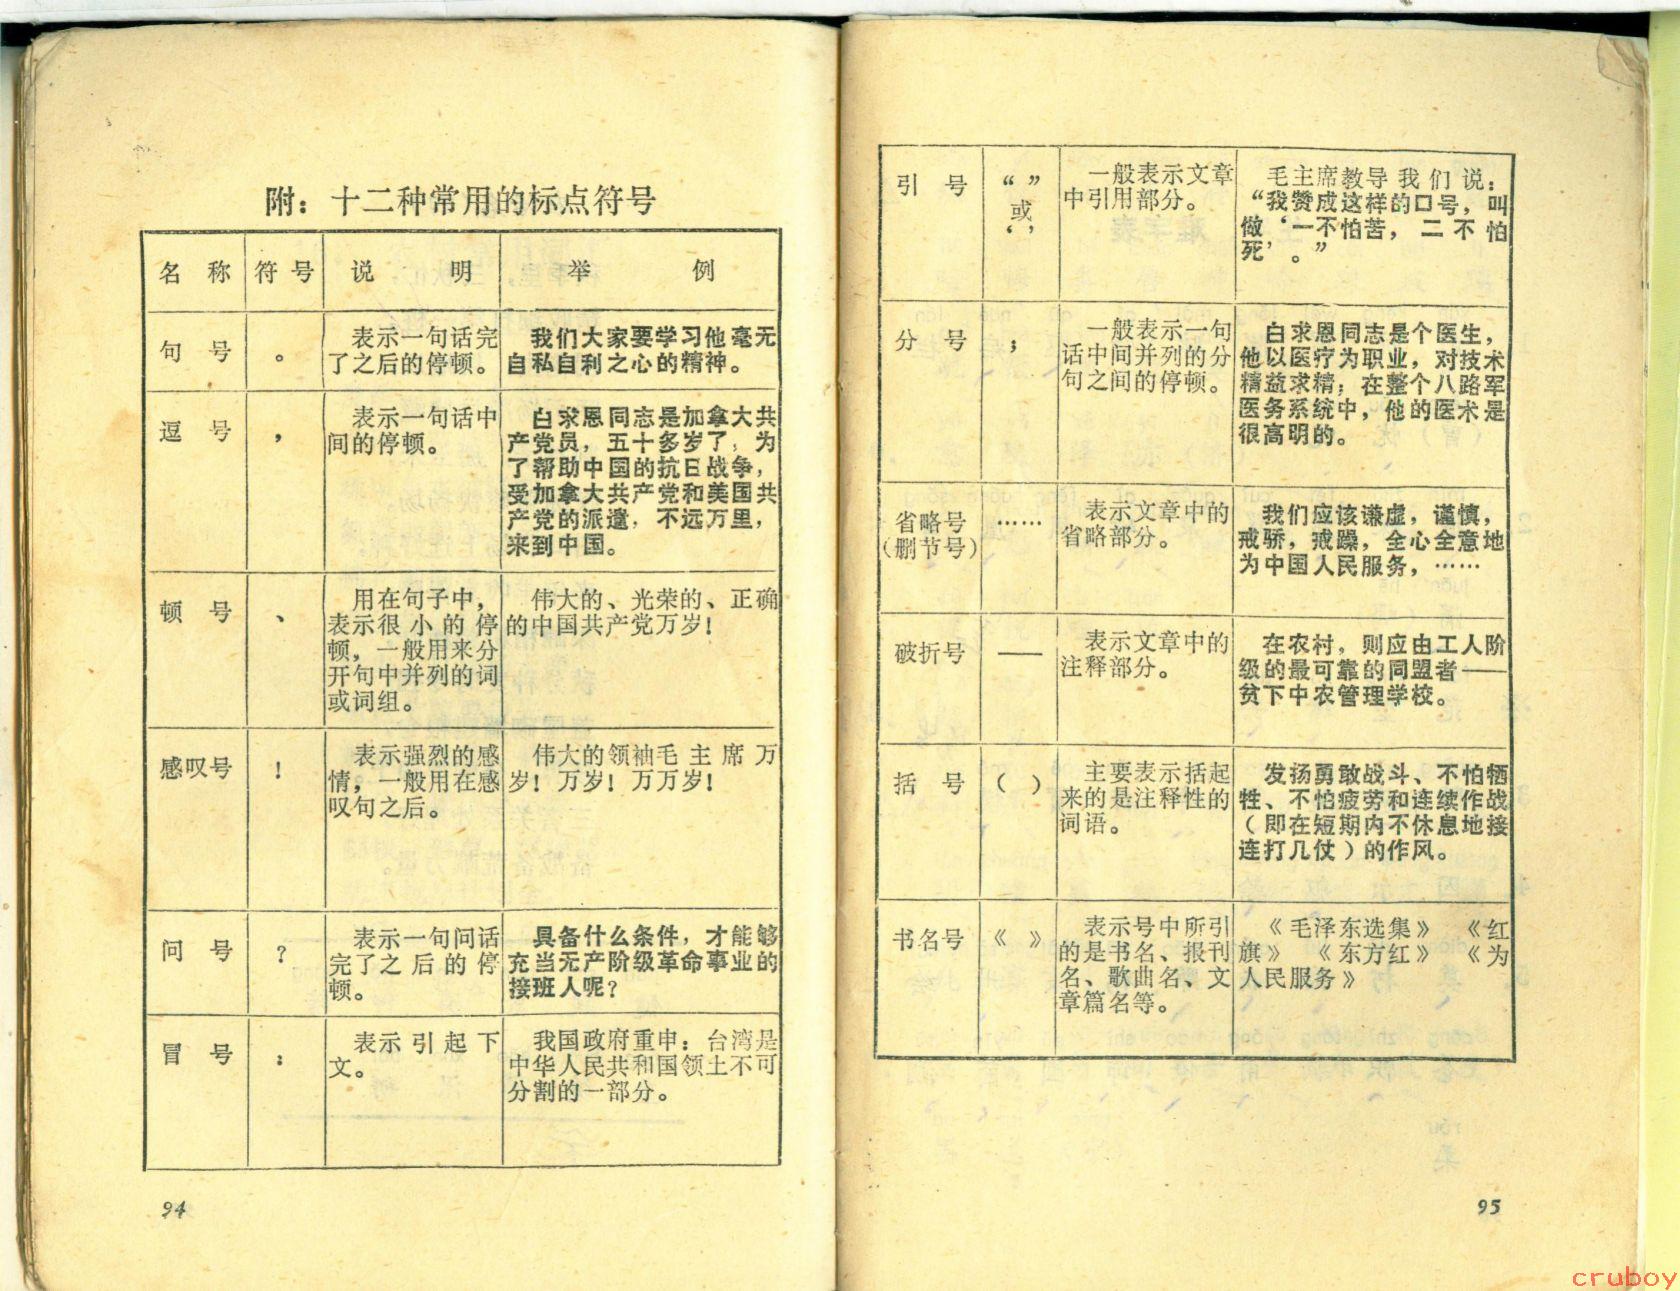 附：十二种常用的标点符号
名称 符号 说明 举例
句号 。 表示一句话完
了之后的停顿。
我们大家要学习他毫无
自私自利之心的精神。
逗号 ， 表示一句话中
间的停顿。
白求恩同志是加拿大共
产党员，五十多岁了，为
了帮助中国的抗日战争，
受加拿大共产党和美国共
产党的派遣，不远万里，
来到中国。
顿号 、 用在句子中，
表示很小的停
顿，一般用来分
开句中并列的词
或词组。
伟大的、光荣的、正确
的中国共产党万岁！
感叹号 ！ 表示强烈的感
情，一般用在感
叹句之后。
伟大的领袖毛主席万
岁！万岁！万万岁！
问号 ？ 表示一句问话
完了之后的停
顿。
具备什么条件，才能够
充当无产阶级革命事业的
接班人呢？
冒号 ： 表示引起下
文。
我国政府重申：台湾是
中华人民共和国领土不可
分割的一部分。
94
引号 “”
或
‘’
一般表示文章
中引用部分。
毛主席教导我们说：
“我赞成这样的口号，叫
做‘一不怕苦，二不怕
死’。”
分号 ； 一般表示一句
话中间并列的分
句之间的停顿。
白求恩同志是个医生，
他以医疗为职业，对技术
精益求精；在整个八路军
医务系统中，他的医术是
很高明的。
省略号
（删节号）
…… 表示文章中的
省略部分。
我们应该谦虚，谨慎，
戒骄，戒躁，全心全意地
为中国人民服务，……
破折号 —— 表示文章中的
注释部分。
在农村，则应由工人阶
级的最可靠的同盟者——
贫下中农管理学校。
括号 （ ） 主要表示括起
来的是注释性的
词语。
发扬勇敢战斗、不怕牺
牲、不怕疲劳和连续作战
（即在短期内不休息地接
连打几仗）的作风。
书名号 《 》 表示号中所引
的是书名、报刊
名、歌曲名、文
章篇名等。
《毛泽东选集》 《红
旗》 《东方红》 《为
人民服务》
95
cruboy